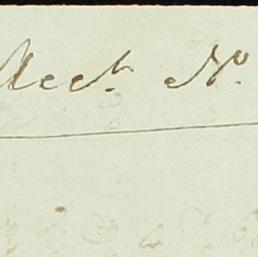 Acct. No.